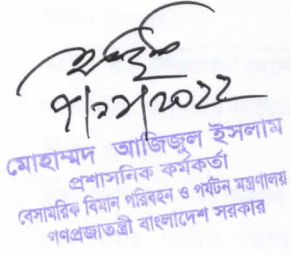 ৭/১২/২০২২
মোহাম্মদ আজিজুল ইসলাম
প্রশাসনিক কর্মকর্তা
বেসামরিক বিমান পরিবহন ও পর্যটন মন্ত্রণালয়
গণপ্রজাতন্ত্রী বাংলাদেশ সরকার